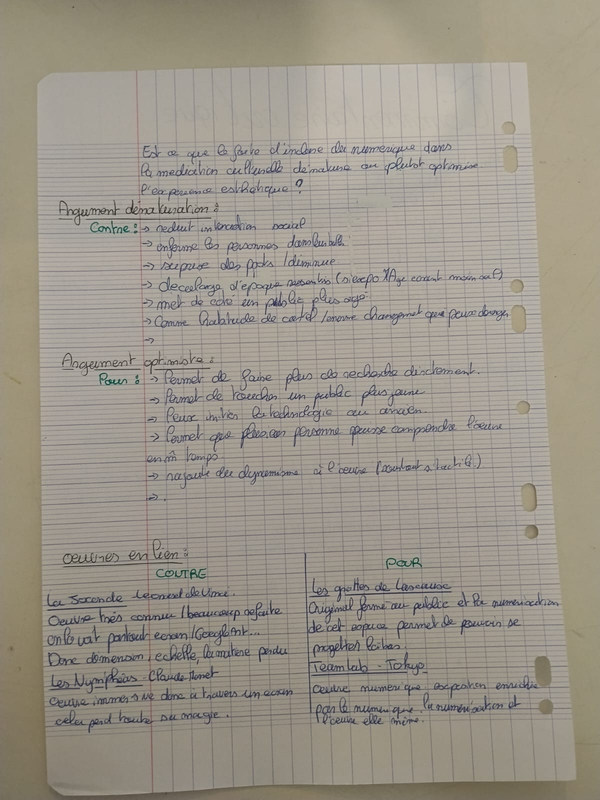 Est ce que le faite d'inclure du numerique dans
la mediation culturelle dénature ou plutot optimise
l'experience esthetique ?
Argument dénaturation :
Contre : → reduit interaction social
→ informe les personnes dans
→ surprise des poots / diminue
→ decalage d'epoque ressentis (si expo XAge
→ met de coté un public plus agé
→ Comme habitude de cartel / enorme changement que peux déranger
→
Argument optimiste :
Pour : → Permet de faire plus de recherche directement.
→ Permet de toucher un public plus jeune
→ Peux initier la technologie au ancien.
→ Permet que plusieurs personne puisse comprendre l'œuvre
en m̂ temps
→ rajoute du dynamisme à l'œuvre (surtout si tactile)
→ .
œuvres en lien :
CONTRE
La Joconde Leonard de Vinci.
Oeuvre très connu / beaucoup refaite
on le voit partout ecran / Google Art...
Donc dimension, echelle, la matière perdu
Les Nymphéas - Claude Monet
Œuvre immersive donc à travers un ecran
cela perd toute sa magie.
POUR
Les grottes de Lascause
Original fermé au public et la numerisation
de cet espace permet de pouvoir se
projetter là bas.
Teamlab - Tokyo
œuvre numerique, exposition enrichie
par le numerique, la numérisation et
l'œuvre elle même.